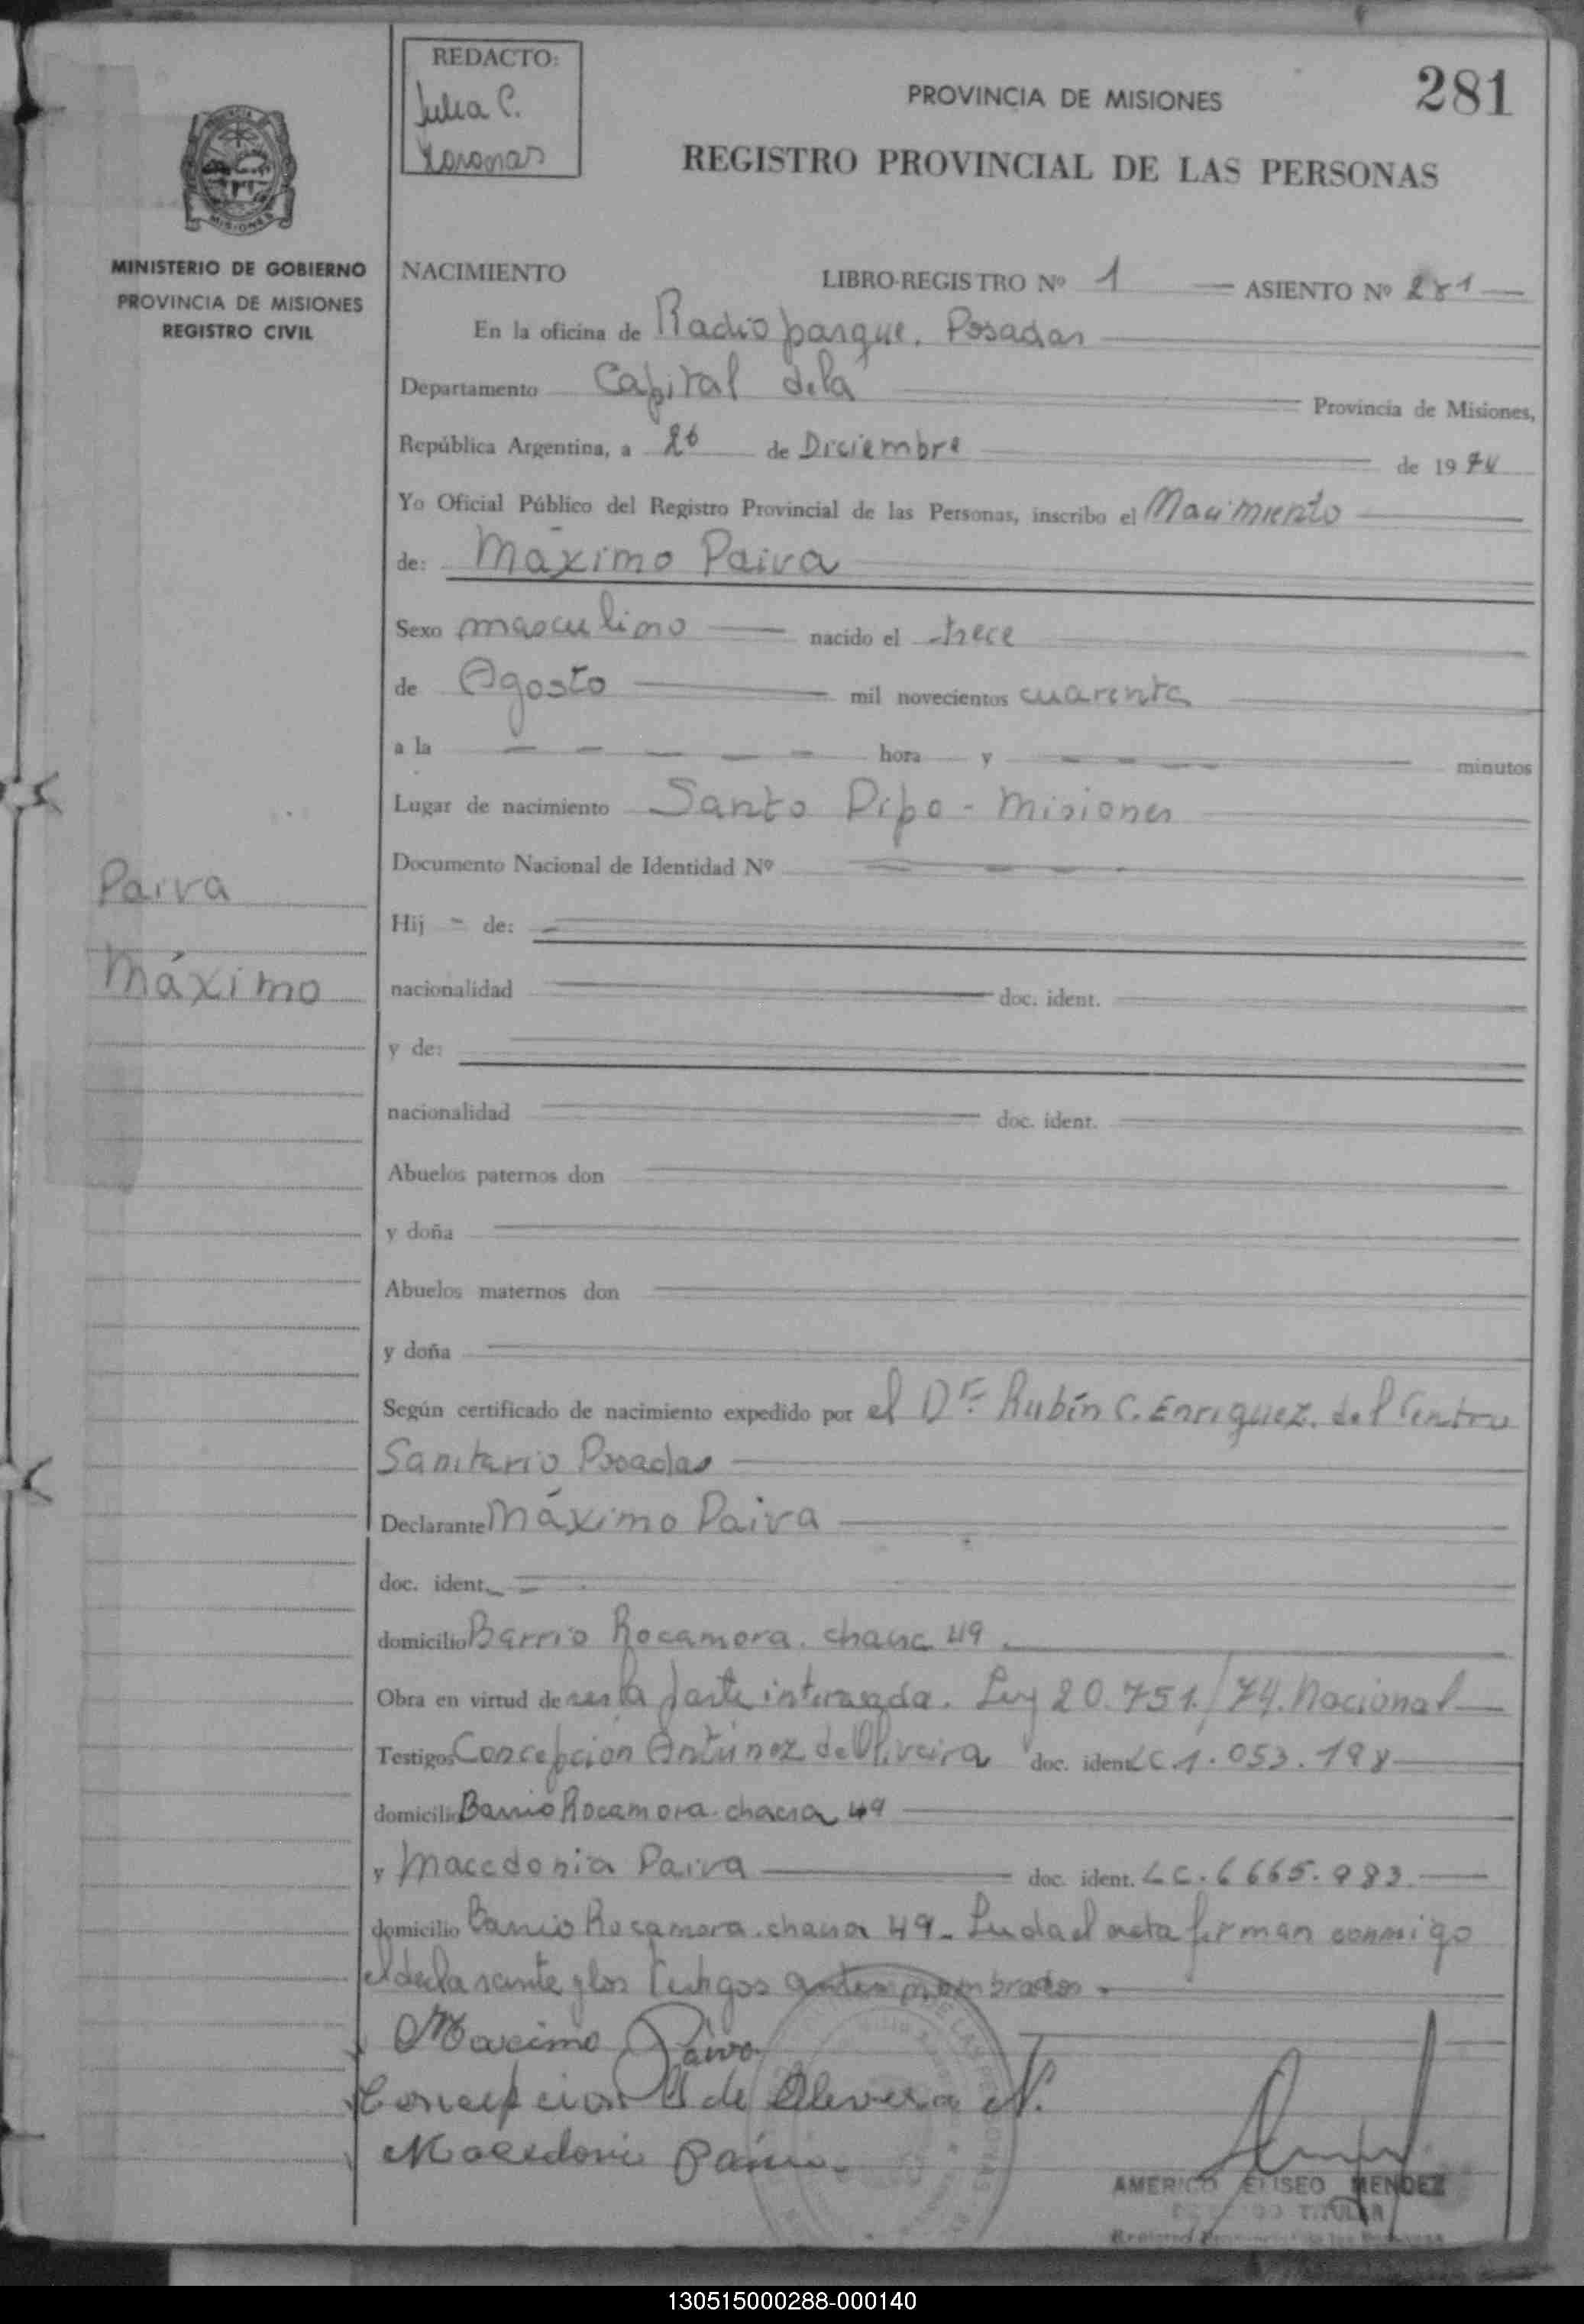 REDACTO:
Julia C.
281
PROVINCIA DE MISIONES
REGISTRO PROVINCIAL DE LAS PERSONAS
MISIONES
MINISTERIO DE GOBIERNO
PROVINCIA DE MISIONES
REGISTRO CIVIL
NACIMIENTO LIBRO-REGISTRO Nº 1 ASIENTO Nº 281
En la oficina de Radio parque. Posadas
Departamento Capital de la Provincia de Misiones,
República Argentina, a 26 de Diciembre de 1974
Yo Oficial Público del Registro Provincial de las Personas, inscribo el Nacimiento
de: Máximo Paiva
Sexo masculino nacido el trece
de Agosto mil novecientos cuarenta
a la hora y minutos
Lugar de nacimiento Santo Pipo - Misiones
Documento Nacional de Identidad Nº
Paiva
Hij de:
Máximo
nacionalidad doc. ident.
y de:
nacionalidad doc. ident.
Abuelos paternos don
y doña
Abuelos maternos don
y doña
Según certificado de nacimiento expedido por el Dr. Rubén C. Enriquez. del Centro
Sanitario Posadas
Declarante Máximo Paiva
doc. ident.
domicilio Barrio Rocamora. chacra 49
Obra en virtud de ser la parte interesada. Ley 20.751/74. Nacional
Testigos Concepción Antúnez de Oliveira doc. ident LC 1.053.198
domicilio Barrio Rocamora. chacra 49
y Macedonia Paiva doc. ident. LC. 6665.983
domicilio Barrio Rocamora. chacra 49. Leida el acta firman conmigo
el declarante y los testigos antes nombrados.
Maximo Paiva
Concepcion A de Olevera N.
Macedonia Paiva
AMERICO ELISEO MENDEZ
TITULAR
130515000288-000140